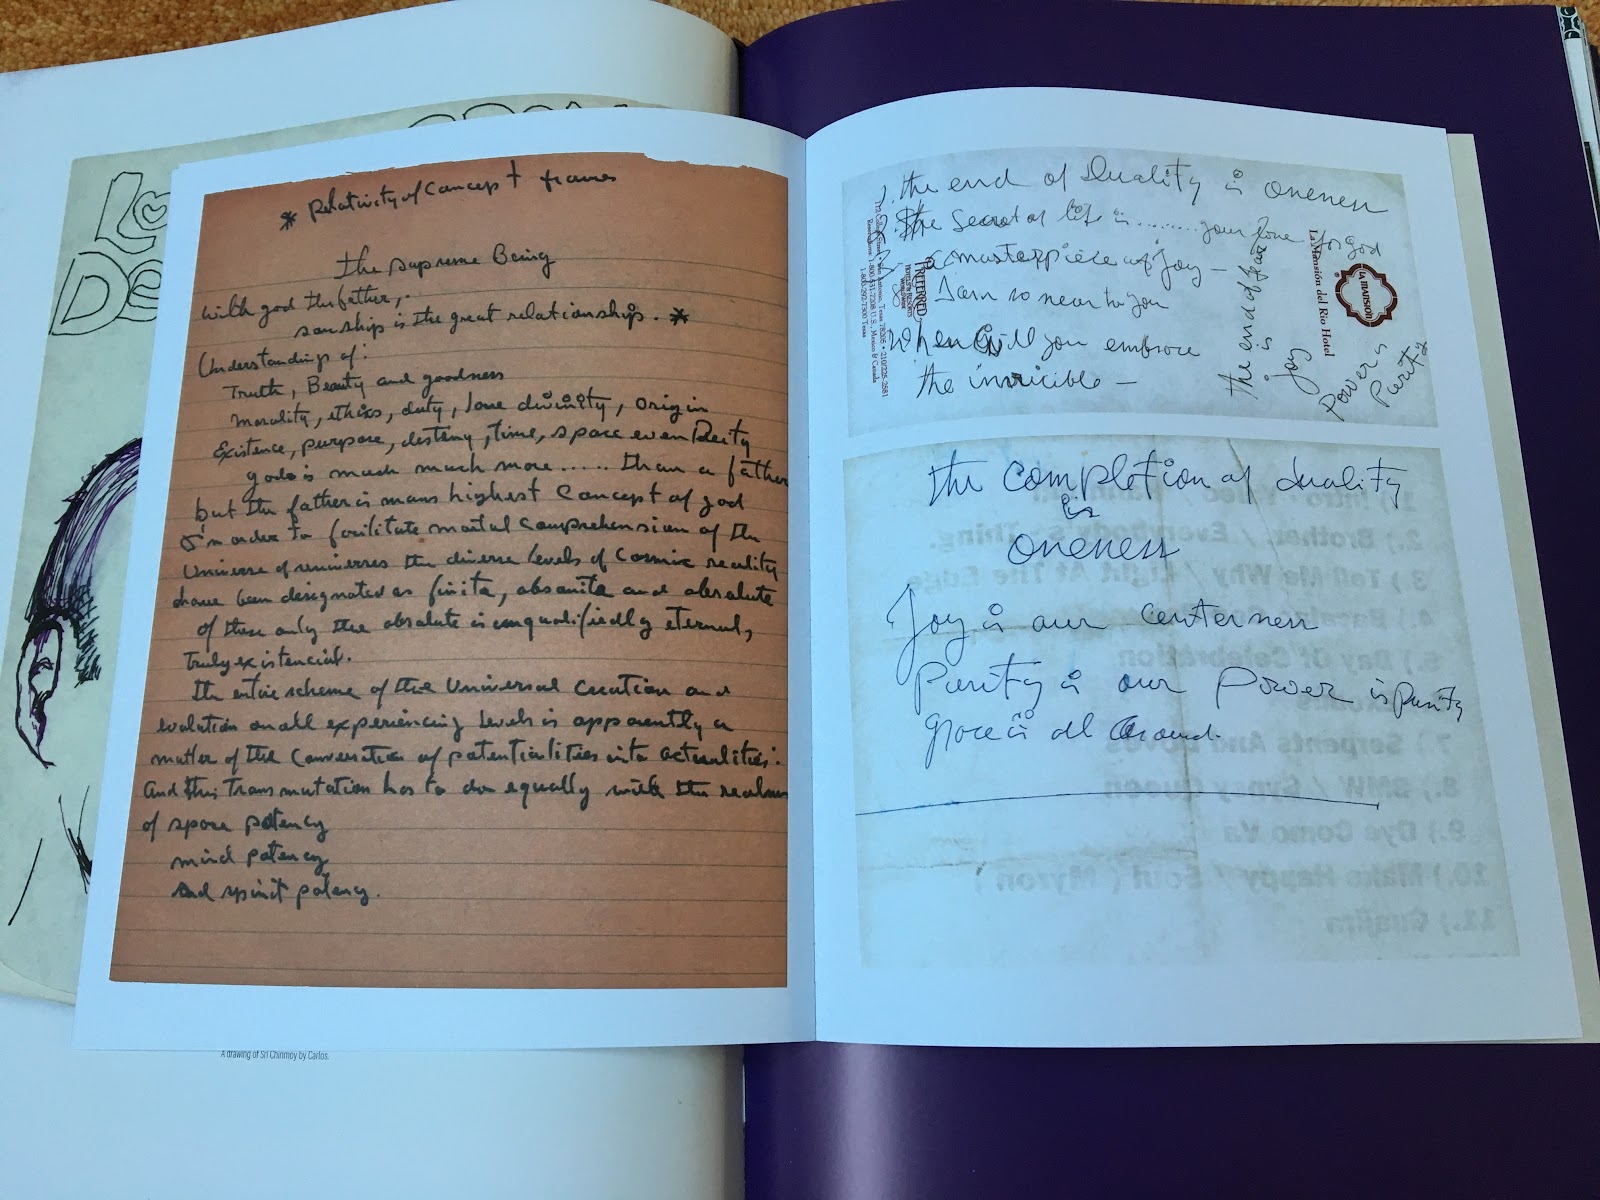 Lo
De
* Relativity of Concept frames
the supreme Being
with god the father,
sonship is the great relationship. *
Understandings of:
Truth, Beauty and goodness
Morality, ethics, duty, love divinity, origin
Existence, purpose, destiny, time, space even Deity
god is much much more...... than a father
but the father is mans highest concept of god
in order to facilitate mortal comprehension of the
Universe of universes the diverse levels of cosmic reality
have been designated as finite, absonite and absolute
of these only the absolute is unqualifiedly eternal,
truly existencial.
the entire scheme of the Universal creation and
evolution on all experiencing levels is apparently a
matter of the conversation of potentialities into actualities:
And this transmutation has to do equally with the realms
of space potency
mind potency
and spirit potency.
A drawing of Sri Chinmoy by Carlos.
1. the end of Duality is oneness
2. the secret of life is ........ your love for god
a masterpiece of Joy -
I am so near to you
When will you embrace
the invicible -
the end of fear
is
joy
Power is
Purity
La Mansión del Rio Hotel
LA MANSION
PREFERRED
Texas 78205 • 210/225-2581
1-800-531-7208 U.S., Mexico & Canada
1-800-292-7300 Texas
the completion of duality
is
oneness
Joy is our centerness
Purity is our power is purity
grace is all around.
1.) Intro
2.) Brother. / Everybodys Thing.
3.) Tell Me Why / Light At The Edge
5.) Day Of Celebration
7.) Serpents And Doves
8.) BMW / Gypsy Queen
9.) Oye Como Va
10.) Make Happy / Soul ( Myron )
11.) Guajira